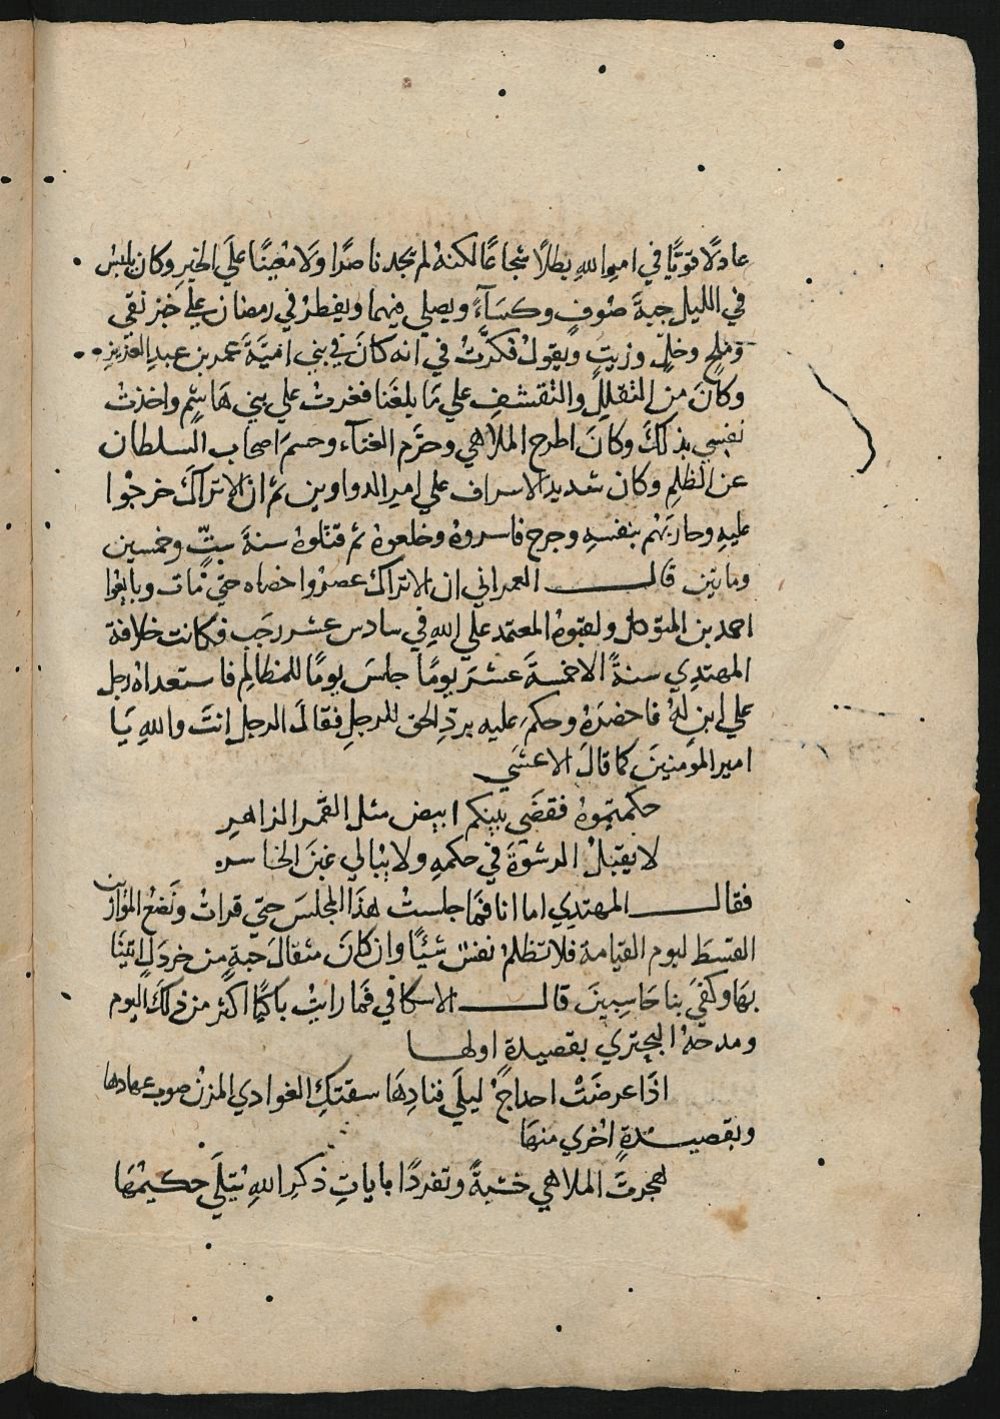 عادلًا قويًّا في امرِ اللهِ بطلًا شجاعًا لكنهُ لم يجد ناصرًا ولا مُعينًا علَي الخيرِ وكان يلبسُ
في الليل جبةَ صُوفٍ وكسَآءً ويصلي فيهما ويفطرُ في رمضان علي خبزٍ نقي
وملحٍ وخلٍّ وزيتٍ ويقولُ فكرَّتُ في انه كانَ في بني امَيَّةَ عمر بن عبدِ العزيزِ
وكانَ من التقللِ والتقشفِ علي مَا بلغَنا فغرتُ علي بني هَاشمٍ واخذتُ
نفسي بذلكَ وكانَ اطرح الملاهي وحرَّم الغنآء وحسمَ اصحاب السلطان
عن الظلمِ وكان شديد الاسراف علي امير الدواوين ثم ان الاتراكَ خرجُوا
عليهِ وحاربَهُم بنفسهِ وجرح فاسروهُ وخلعوهُ ثم قتلوهُ سنةَ ستٍّ وخمسين
وماتين قال العمراني ان الاتراكَ عصرُوا خصاه حتي مَات وبايعُوا
احمد بن المتوكل ولقبوهُ المعتمد علي اللهِ في سادس عشر رجَب فكانت خلافة
المهتدِي سنةً الا خمسةَ عشرَ يومًا جلسَ يومًا للمظالِم فاستعداهُ رجل
علي ابنٍ لهُ فاحضرَهُ وحكمَ عليه بردِّ الحق للرجلِ فقالَ الرجل انتَ واللهِ يَا
امير المؤمنينَ كما قالَ الاعشَي
حكمتموهُ فقضَي بينكم ابيض مثل القمَر الزاهرِ
لا يقبلُ الرشوةَ في حكمهِ ولا يُبالي غبنَ الخاسرِ
فقال المهتدِي اما انا فمَا جلستُ هذَا المجلسَ حتي قراتُ ونَضعُ الموازين
القسطَ ليوم القيامة فلا تظلمُ نفسٌ شيئًا وان كانَ مثقالَ حبةٍ من خردَلٍ اتينَا
بهَا وكفَي بنا حَاسِبينَ قال الاسكافي فمَا رايتُ باكيًا اكثر من ذلكَ اليوم
ومدحهُ البحتري بقصيدةٍ اولها
اذَا عرضَتْ احداجُ ليلَي فنادِهَا سقتكِ الغوادي المزنُ صوب عهادها
وبقصيدةٍ اخري منهَا
هجرتَ الملاهي خشيةً وتفردًا باياتِ ذكرِ اللهِ يُتلَي حكيمُهَا